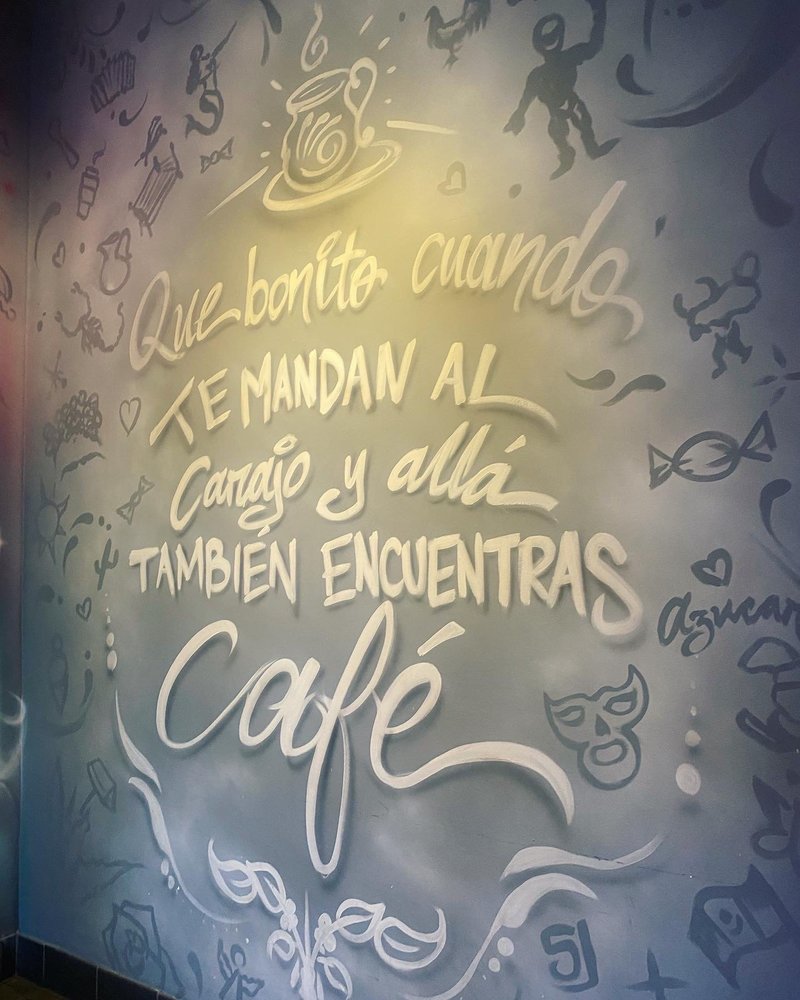 Que bonito cuando
TE MANDAN AL
Carajo y allá
TAMBIÉN ENCUENTRAS
Café
azucar
51